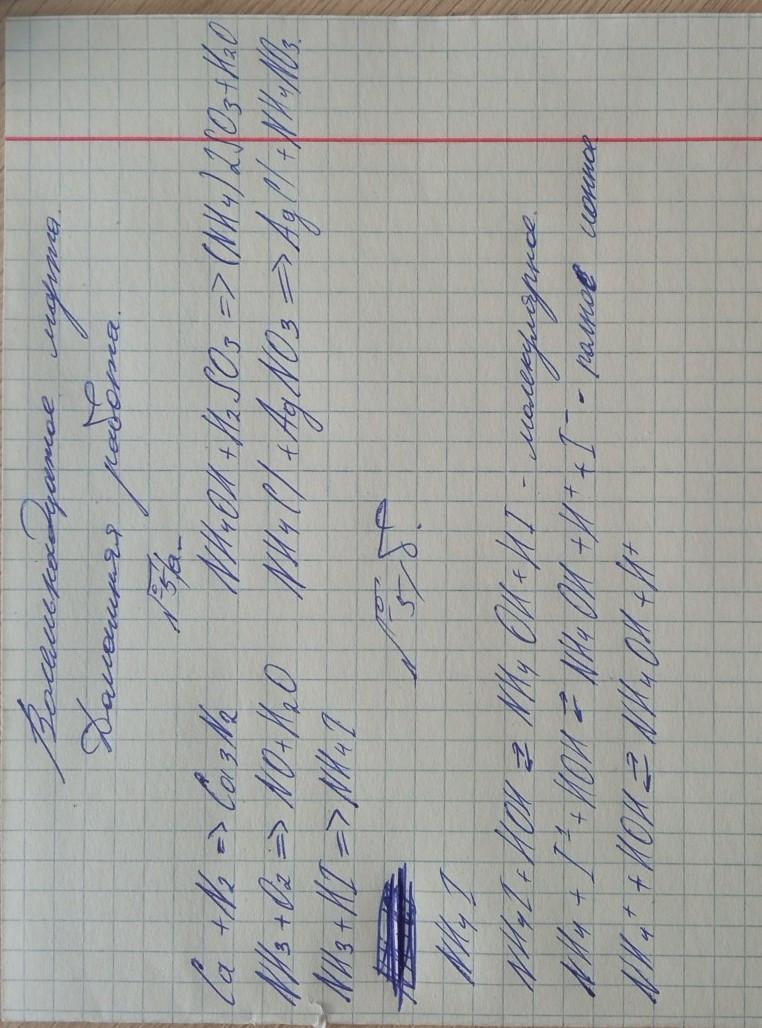 Восемнадцатое марта.
Домашняя работа.
№5/а.
Ca + N2 => Ca3N2
NH3 + O2 => NO + H2O
NH3 + HI => NH4I
NH4OH + H2SO3 => (NH4)2SO3 + H2O
NH4Cl + AgNO3 => AgCl + NH4NO3.
№5/б.
NH4I
NH4I + HOH ⇄ NH4OH + HI - молекулярное.
NH4 + I + HOH ⇄ NH4OH + H+ + I- - полное ионное
NH4+ + HOH ⇄ NH4OH + H+